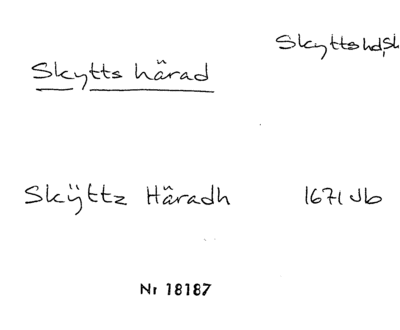 Skyttshd, Sk
Skytts härad
Skÿttz Häradh 1671 Jb
Nr 18187